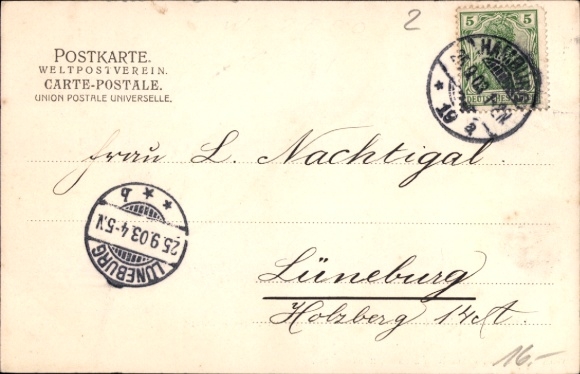 2
POSTKARTE.
WELTPOSTVEREIN.
CARTE-POSTALE.
UNION POSTALE UNIVERSELLE.
5 5
HAMBURG
19 a
Frau L. Nachtigal.
* * b
25.9.03 4-5.V.
LÜNEBURG
Lüneburg
Holzberg
16.-